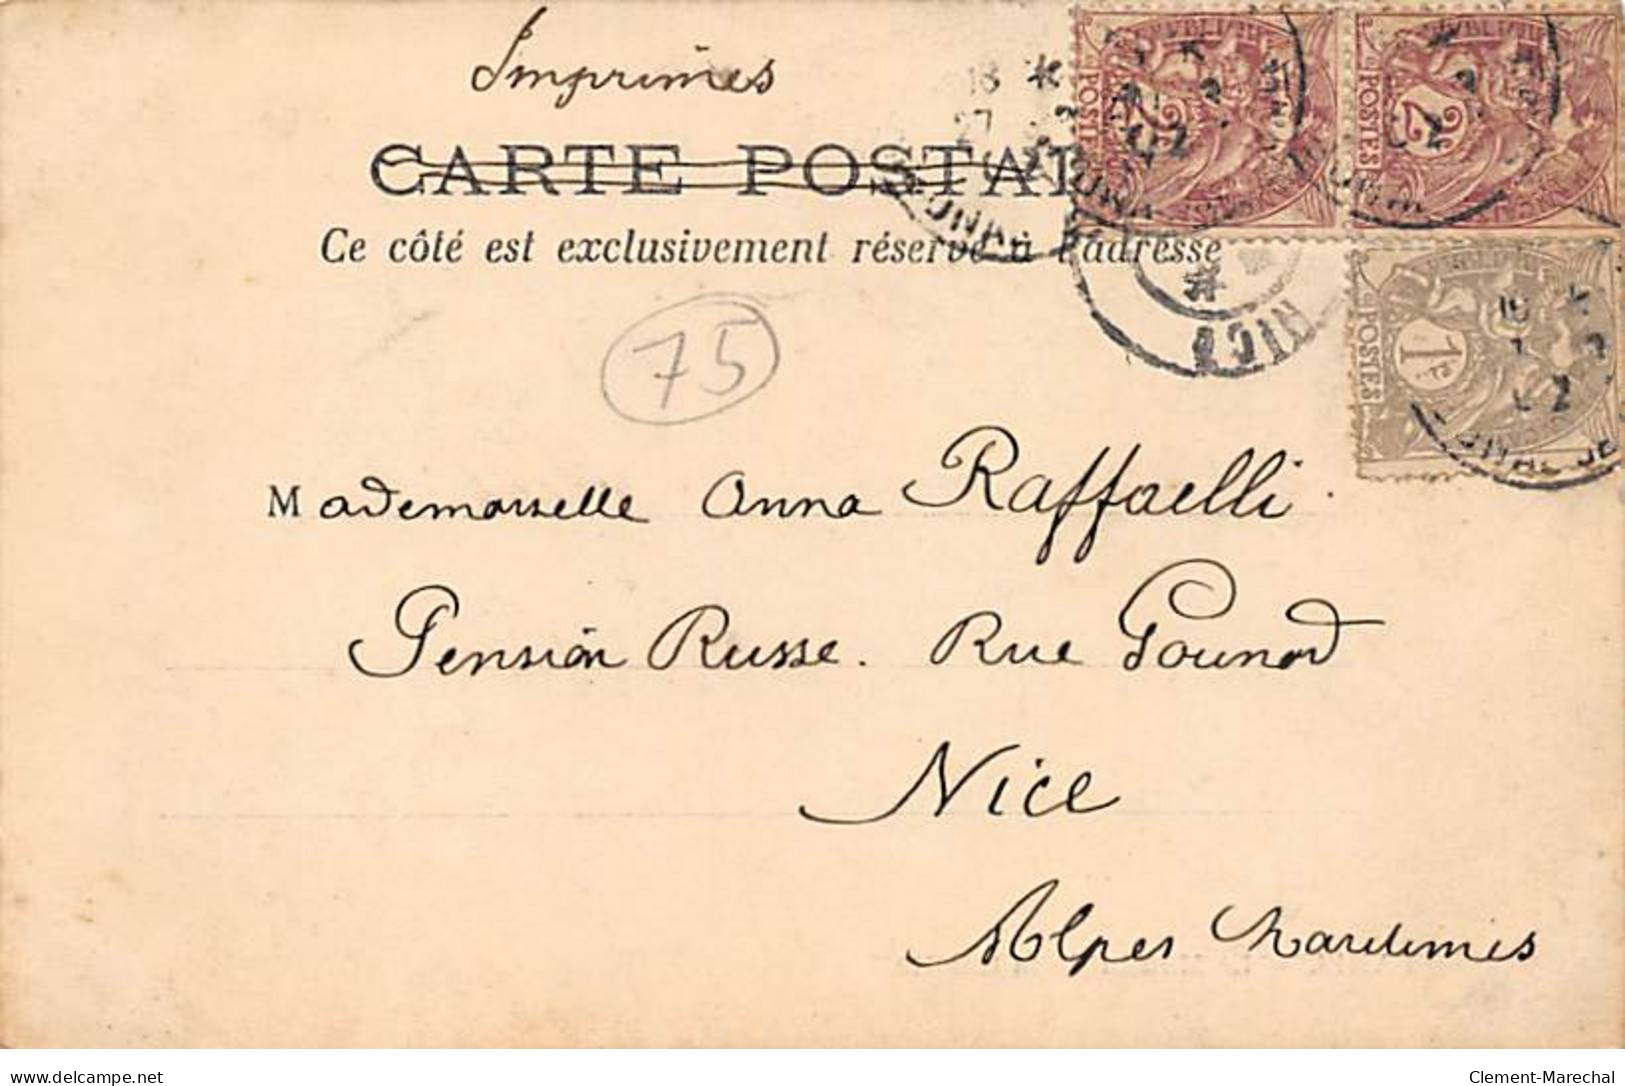 Imprimés
CARTE POSTAL
Ce côté est exclusivement réservé à l'adresse
75
Mademoiselle Anna Raffaelli.
Pension Russe. Rue Gounod
Nice
Alpes Maritimes
POSTES 2c
POSTES 2c
POSTES 1c
NICE
Clement-Marechal (FR) / delcampe.net